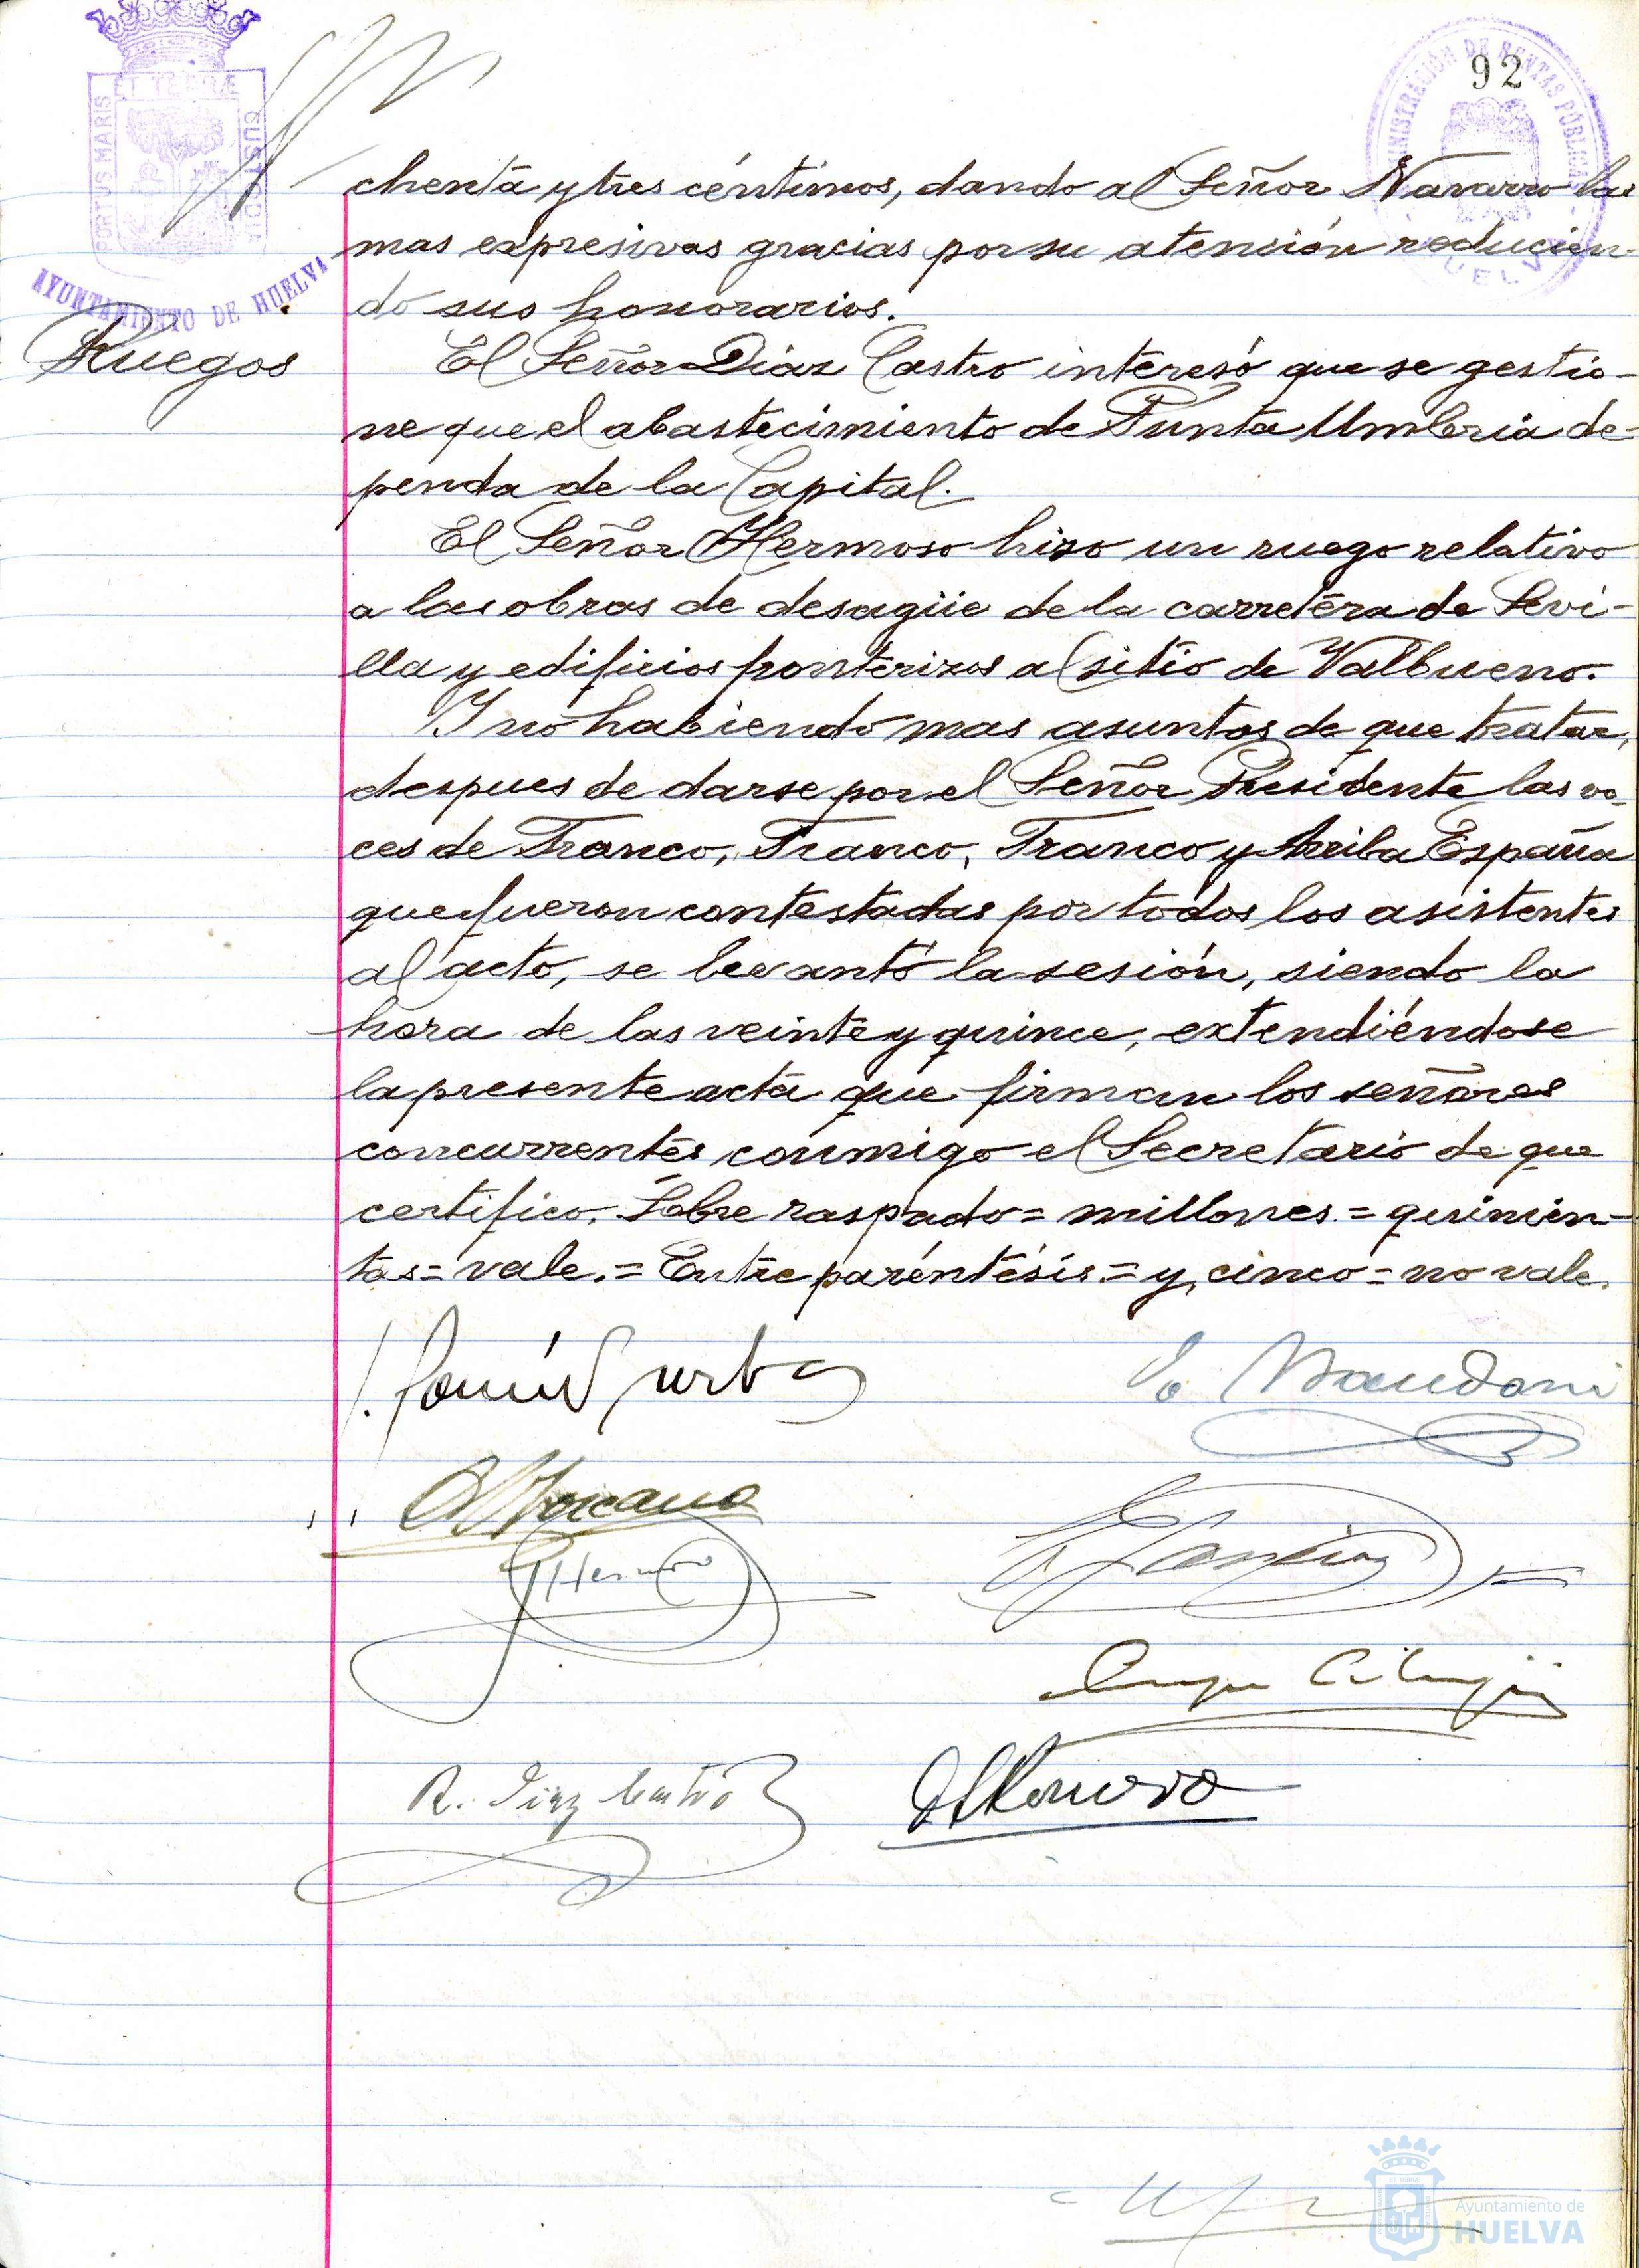 92
PORTUS MARIS
ET TERRÆ
CUSTODIA
AYUNTAMIENTO DE HUELVA
ADMINISTRACIÓN DE RENTAS PÚBLICAS
HUELVA
chenta y tres céntimos, dando al Señor Navarro las
mas expresivas gracias por su atención reducien-
do sus honorarios.
Ruegos
El Señor Diaz Castro interesó que se gestio-
ne que el abastecimiento de Punta Umbria de-
penda de la Capital.
El Señor Hermoso hizo un ruego relativo
a las obras de desagüe de la carretera de Sevi-
lla y edificios fronterizos al sitio de Valbueno.
Y no habiendo mas asuntos de que tratar,
despues de darse por el Señor Presidente las vo-
ces de Franco, Franco, Franco y Arriba España
que fueron contestadas por todos los asistentes
al acto, se levantó la sesión, siendo la
hora de las veinte y quince, extendiéndose
la presente acta que firman los señores
concurrentes conmigo el Secretario de que
certifico. Sobre raspado = millones = quinien-
tas = vale. = Entre paréntésis = y, cinco = no vale.
R. Diaz Castro
Ayuntamiento de
HUELVA